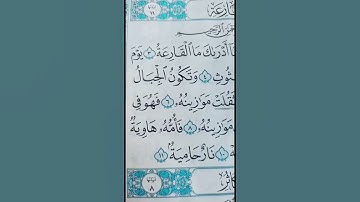 ٱلرَّحِيمِ
أَدْرَىٰكَ مَا ٱلْقَارِعَةُ ٣ يَوْمَ
ثُوثِ ٤ وَتَكُونُ ٱلْجِبَالُ
ثَقُلَتْ مَوَٰزِينُهُۥ ٦ فَهُوَ فِى
مَوَٰزِينُهُۥ ٨ فَأُمُّهُۥ هَاوِيَةٌ
١٠ نَارٌ حَامِيَةٌۢ ١١